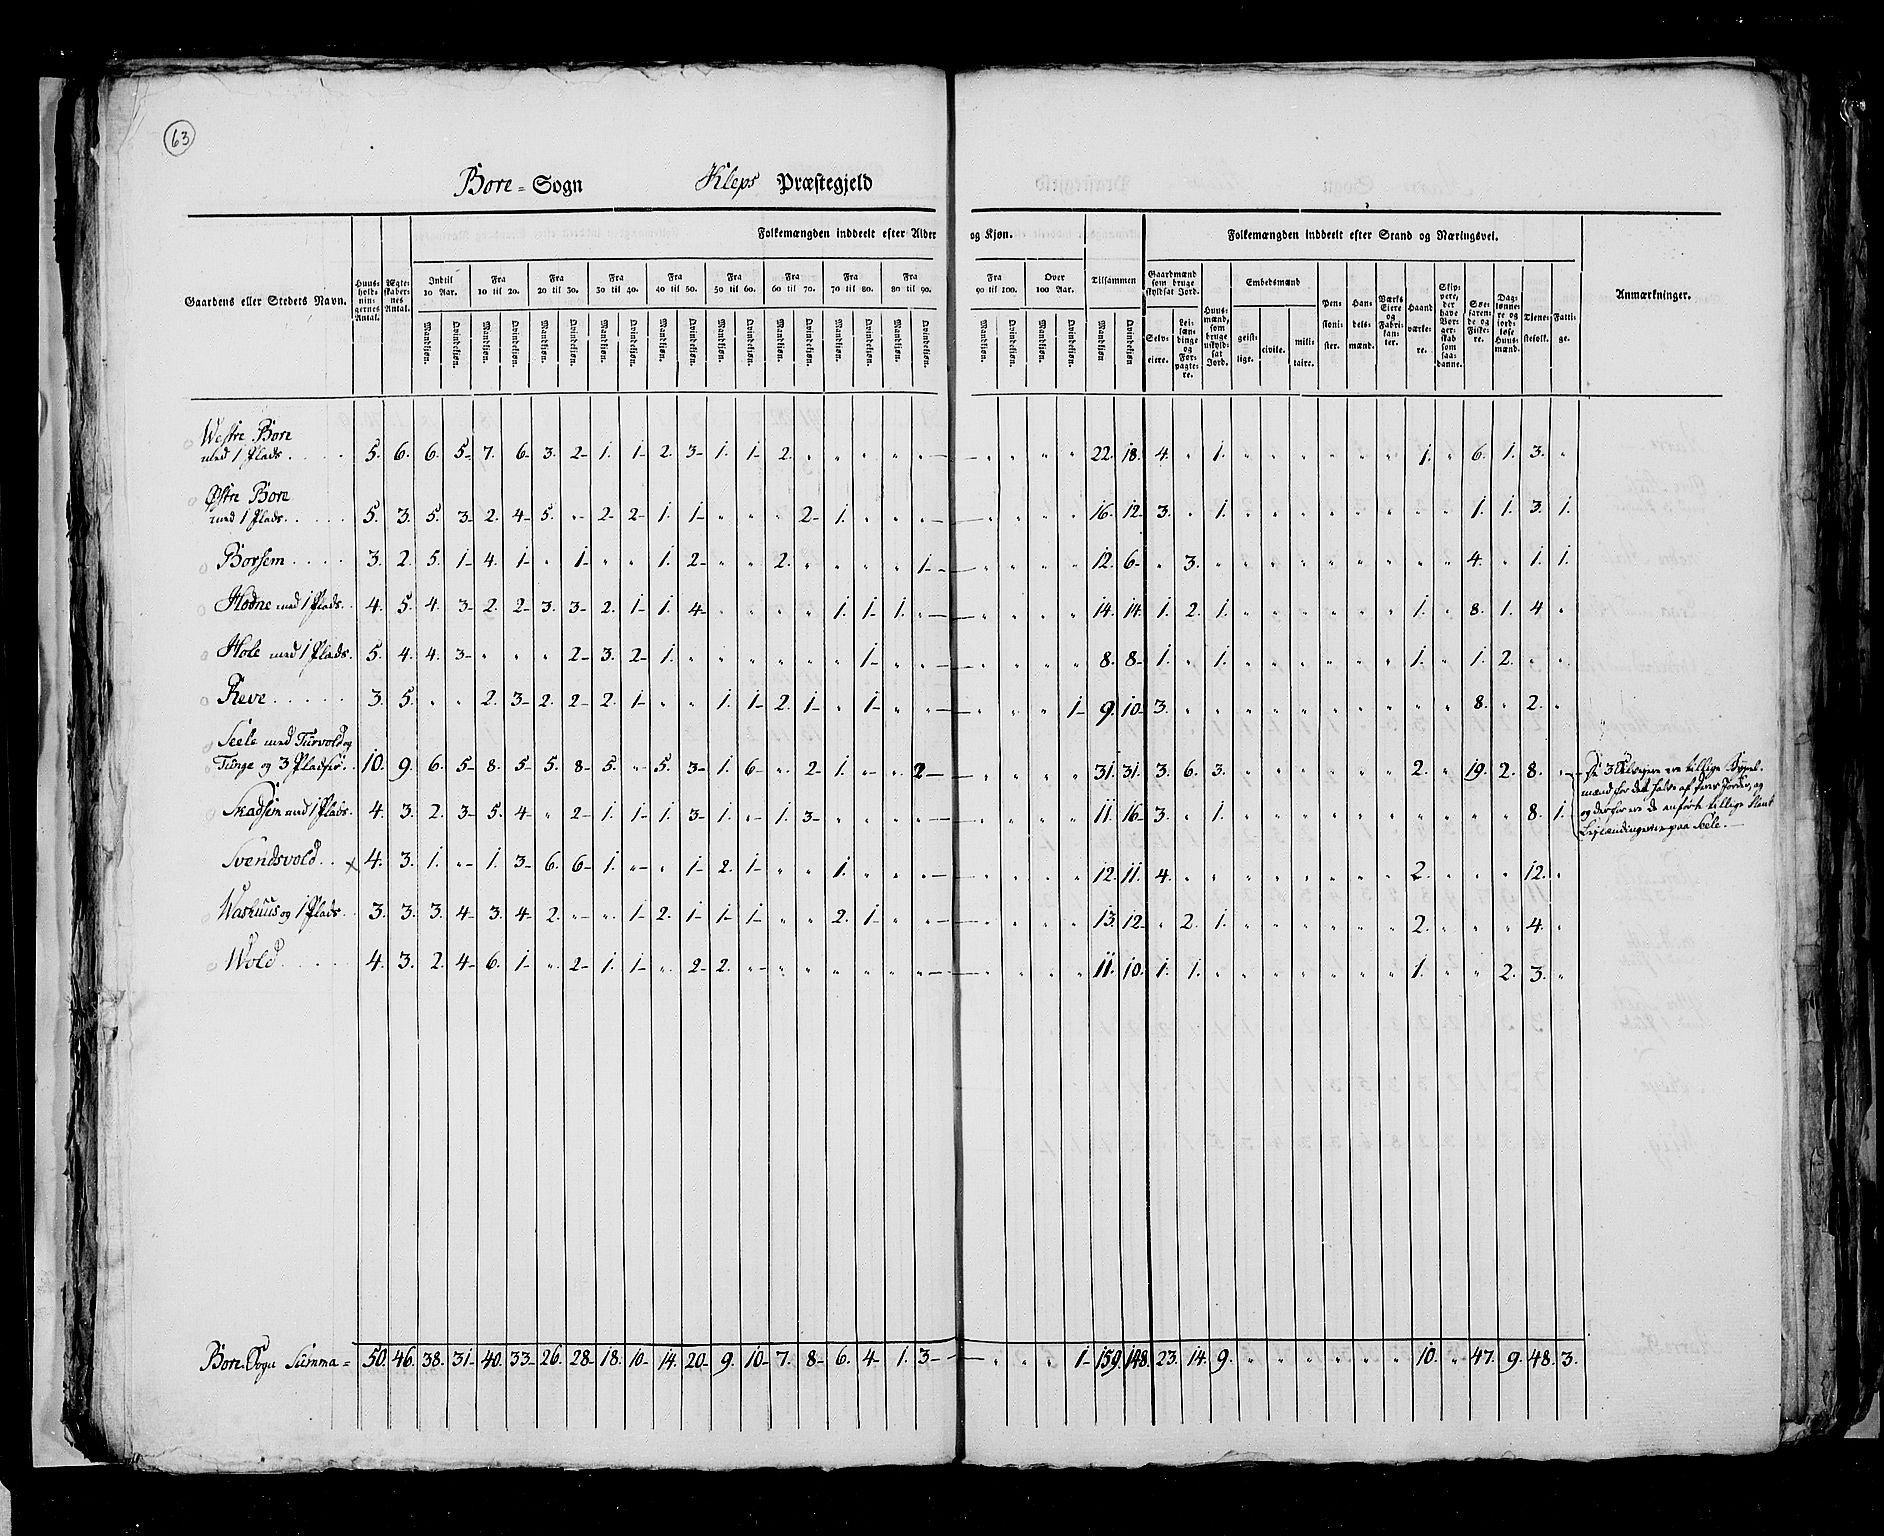 63
Bore = Sogn Kleps Præstegjeld
Folkemængden inddeelt efter Alder og Kjøn. Folkemængden inddeelt efter Stand og Næringsvei.
Gaardens eller Stedets Navn. Huus-holdnin-gernes Antal. Ægte-skaber-nes Antal. Indtil 10 Aar. Fra 10 til 20. Fra 20 til 30. Fra 30 til 40. Fra 40 til 50. Fra 50 til 60. Fra 60 til 70. Fra 70 til 80. Fra 80 til 90. Fra 90 til 100. Over 100 Aar. Tilsammen Gaardmænd som bruge skyldsat Jord. Huus-mænd, som bruge uskyld-sat Jord. Embedsmænd Pen-sioni-ster. Han-dels-mænd. Værks Eiere og Fabri-kan-ter. Haand-værke-re. Skip-pere, der have Bor-ger-skab som saa-danne. Søe-faren-de og Fiske-re. Dag-lønne-re og jord-løse Huus-mænd. Tiene-stefolk. Fatti-ge. Anmærkninger.
Mandkjøn. Qvindekjøn. Mandkjøn. Qvindekjøn. Mandkjøn. Qvindekjøn. Mandkjøn. Qvindekjøn. Mandkjøn. Qvindekjøn. Mandkjøn. Qvindekjøn. Mandkjøn. Qvindekjøn. Mandkjøn. Qvindekjøn. Mandkjøn. Qvindekjøn. Mandkjøn. Qvindekjøn. Mandkjøn. Qvindekjøn. Mandkjøn Qvindekjøn Selv-eiere. Lei-læn-dinge og For-pagte-re. geist-lige. civile. mili-taire.
Westre Bore
med 1 Plads. 5. 6. 6. 5- 7. 6- 3. 2- 1. 1- 2. 3- 1. 1- 2. " " " " " " " " " 22. 18. 4. " 1. " " " " " " 1. " 6. 1. 3. "
Østre Bore
med 1 Plads. 5. 3. 5. 3- 2. 4- 5. " 2- 2- 1. 1- " " " 2- 1. " " " " " " " 16. 12- 3. " 1. " " " " " " " " 1. 1. 3. 1.
Borsem 3. 2. 5. 1- 4. 1- " 1- " " 1. 2- " " 2. " " " " 1- " " " " 12. 6- " 3. " " " " " " " " " 4. " 1. 1.
Hodne med 1 Plads. 4. 5. 4. 3- 2. 2- 3. 3- 2. 1- 1. 4- " " " " 1. 1- 1. " " " " " 14. 14. 1. 2. 1. " " " " " " 1. " 8. 1. 4. "
Hole med 1 Plads. 5. 4. 4. 3- " " " 2- 3. 2- 1. " " " " " " 1- " " " " " " 8. 8- 1. " 1. " " " " " " 1. " 1. 2. " "
Reve 3. 5. " " 2. 3- 2. 2- 2. 1- " " 1. 1- 2. 1- " 1- " " " " " 1- 9. 10- 3. " " " " " " " " " " 8. " 2. "
Seele med Turvold og
Tunge og 3 Pladser. 10. 9. 6. 5- 8. 5- 5. 8- 5. " 5. 3- 1. 6- " 2- 1. " " 2- " " " " 31. 31. 3. 6. 3. " " " " " " 2. " 19. 2. 8. "
De 3 Selveiere ere tillige Bøxel-
mænd for det halve af deres Jorder, og
og derfor ere de anførte tillige blant
Leilændingerne paa Seele.
Skadsem med 1 Plads. 4. 3. 2. 3- 5. 4- " 2- 1. 1- 1. 3- 1. " 1. 3- " " " " " " " " 11. 16- 3. " 1. " " " " " " " " " " 8. 1.
Svendsvold. x 4. 3. 1. " 1. 3- 6. 6- 1. " " 1- 2. 1- " " 1. " " " " " " " 12. 11. 4. " " " " " " " " 2. " " " 12. "
Washuus og 1 Plads. 3. 3. 3. 4- 3. 4- 2. " " 1- 2. 1- 1- 1- " " 2. 1- " " " " " " 13. 12- " 2. 1. " " " " " " 2. " " " 4. "
Wold 4. 3. 2. 4- 6. 1- " 2- 1. 1- " 2- 2. " " " " " " " " " " " 11. 10. 1. 1. " " " " " " " 1. " " 2. 3. "
Bore Sogn Summa = 50. 46. 38. 31- 40. 33- 26. 28- 18. 10- 14. 20- 9. 10- 7. 8- 6. 4- 1. 3- " " " 1- 159. 148. 23. 14. 9. " " " " " " 10. " 47. 9. 48. 3.